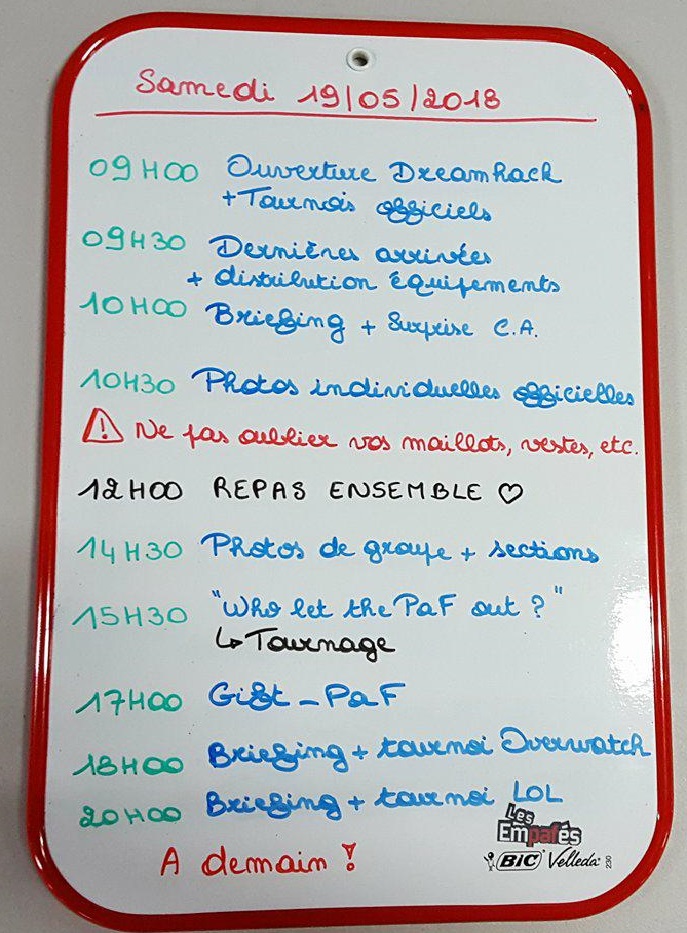 Samedi 19/05/2018
09H00 Ouverture Dreamhack
+ Tournois officiels
09H30 Dernières arrivées
+ distribution équipements
10H00 Briefing + Surprise C.A.
10H30 Photos individuelles officielles
! Ne pas oublier vos maillots, vestes, etc.
12H00 REPAS ENSEMBLE ♡
14H30 Photos de groupe + sections
15H30 "Who let the PaF out ?"
↳ Tournage
17H00 Gift - PaF
18H00 Briefing + tournoi Overwatch
20H00 Briefing + tournoi LOL
Les
Empafés
A demain !
BIC Velleda 230